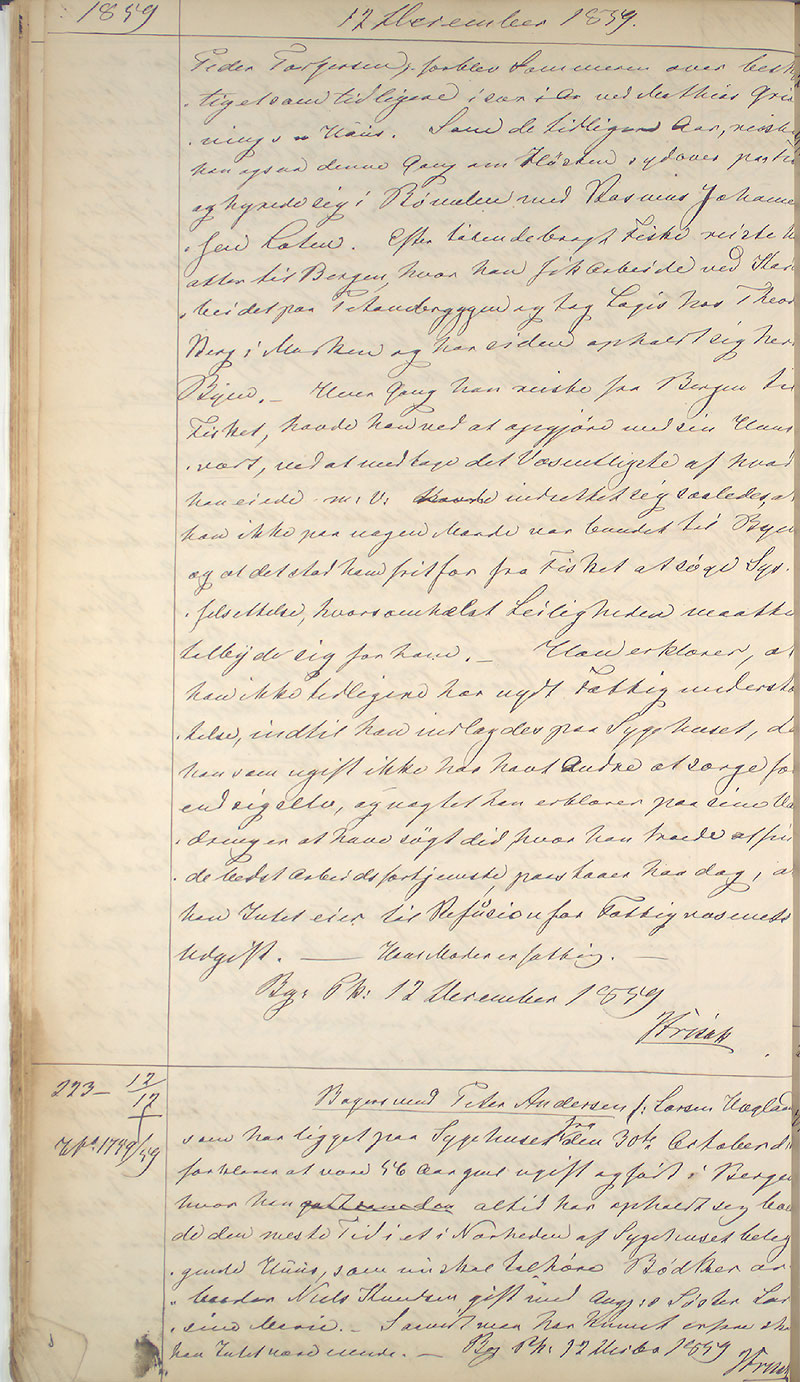 1859
12 December 1859.
Peder Torgersen, forblev Sommeren over besk
tiget som tidligere især i Aar ved Mathias Grø
nings Huus. Som de tidligere Aar, reiste
han ogsaa denne Gang om Høsten sydover paa Fi
og hyrede sig i Bømelen med Rasmus Johanne
sen Loten. Efter tilendebragt Fiske reiste h
atter til Bergen, hvor han fik Arbeide ved
beidet paa og tog Logis hos Theod
Berg i Marken og har siden opholdt sig her
Byen. — Hver Gang han reiste fra Bergen til
Fisket, havde han ved at opgjøre med sin Huus
vært, ved at medtage det Væsentligste af hvad
han eiede m: v: indrettet sig saaledes, at
han ikke paa nogen Maade var bundet til Byen
og at det stod ham frit for fra Fisket at søge Sys
selsettelse, hvorsomhelst Leiligheden maatte
tilbyde sig for ham. — Han erklærer, at
han ikke tidligere har nydt Fattigunderstø
telse, indtil han indlagdes paa Sygehuset, da
han som ugift ikke har havt Andre at sørge for
end sig selv, og uagtet han erklærer paa sine Va
dringer at have søgt did hvor han troede at fin
de bedst Arbeidsfortjeneste, paastaaer han dog, at
han Intet eier til Refusion for Fattigvæsenets
Udgift. — Hans Moder er fattig. —
Bg: Pk: 12 December 1859
Krisak
223 — 12/12
1749/59
Bagersvend Peter Andersen /: Larsen
som har ligget paa Sygehuset fra den 30te October d:
forklarer at være 56 Aar gml ugift og født i Bergen
hvor han altid har opholdt sig bo
de den meste Tid i et i Nærheden af Sygehuset beleg
gende Huus, som nu skal tilhøre Bødker ar
beider Niels Knudsen gift med Ang:s Søster Lar
sine Marie. — Saavidt man har kunnet erfare
han Intet være eiende. — Bg Pk: 12 Decbr 1859
Krisak